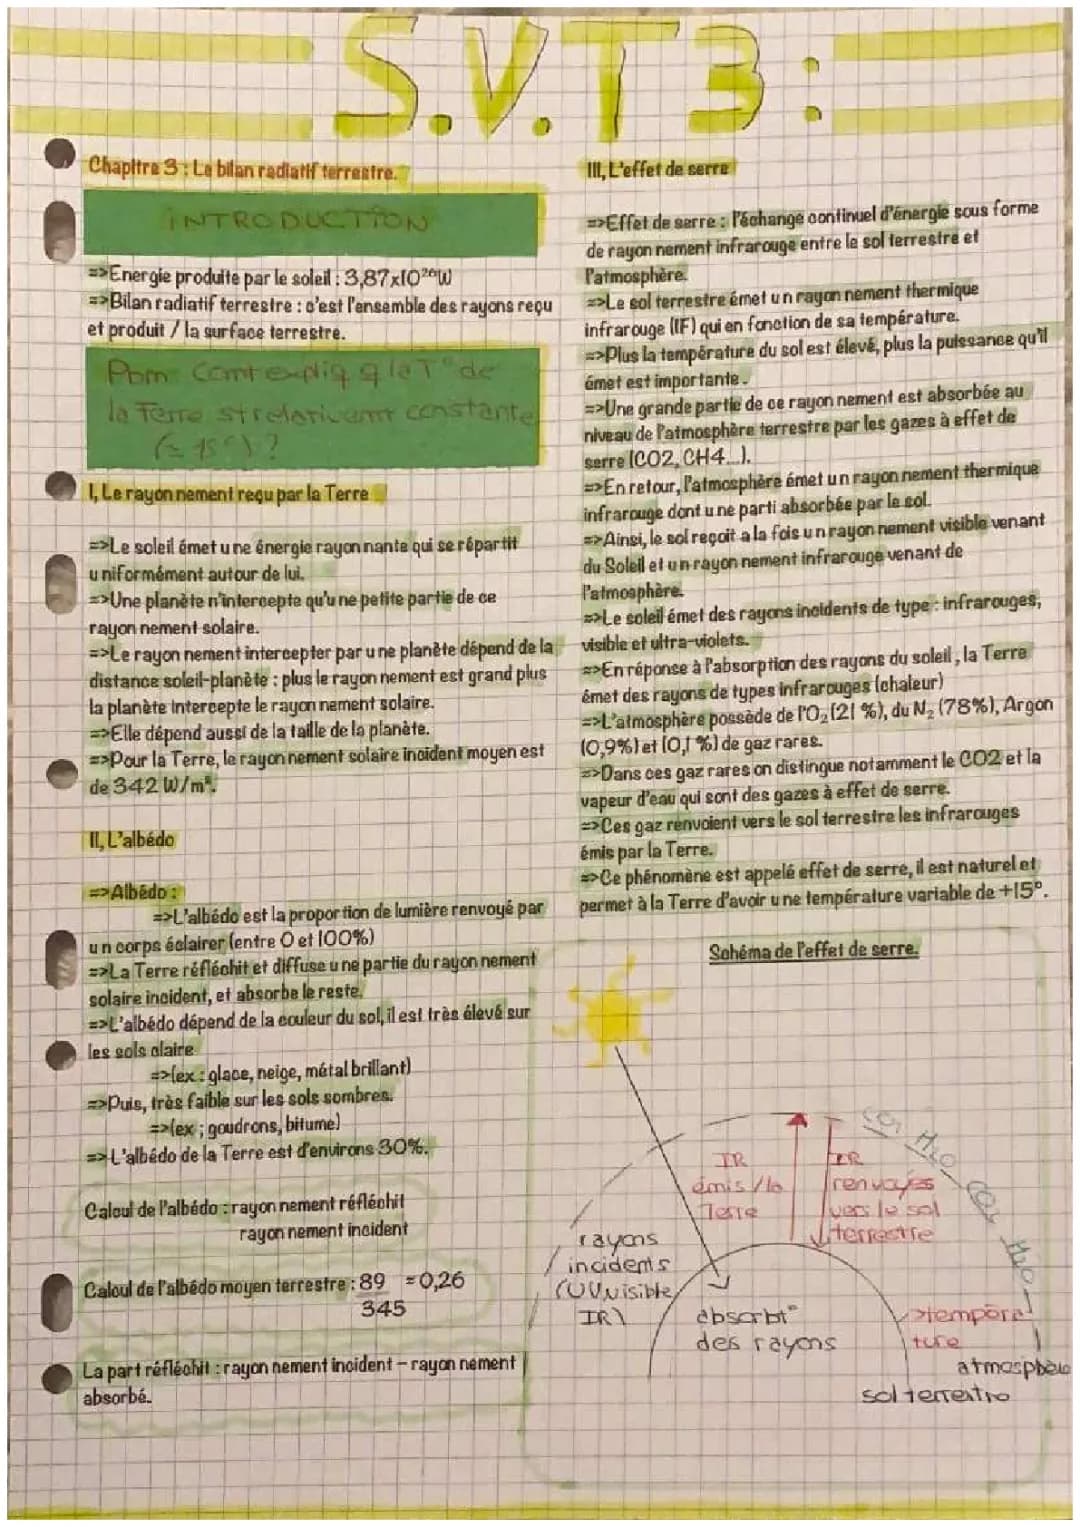 S.V.T 3 :
Chapitre 3 : Le bilan radiatif terrestre.
INTRODUCTION
=>Energie produite par le soleil : 3,87x10²⁶W
=>Bilan radiatif terrestre : c'est l'ensemble des rayons reçu
et produit / la surface terrestre.
Pbm: Comt expliq q la T° de
la Terre st relativemt constante
(≈ 15°) ?
I, Le rayonnement reçu par la Terre
=>Le soleil émet une énergie rayonnante qui se répartit
uniformément autour de lui.
=>Une planète n'intercepte qu'une petite partie de ce
rayonnement solaire.
=>Le rayonnement intercepter par une planète dépend de la
distance soleil-planète : plus le rayonnement est grand plus
la planète intercepte le rayonnement solaire.
=>Elle dépend aussi de la taille de la planète.
=>Pour la Terre, le rayonnement solaire incident moyen est
de 342 W/m².
II, L'albédo
=>Albédo :
=>L'albédo est la proportion de lumière renvoyé par
un corps éclairer (entre 0 et 100%)
=>La Terre réfléchit et diffuse une partie du rayonnement
solaire incident, et absorbe le reste.
=>L'albédo dépend de la couleur du sol, il est très élevé sur
les sols claire
=>(ex : glace, neige, métal brillant)
=>Puis, très faible sur les sols sombres.
=>(ex ; goudrons, bitume)
=>L'albédo de la Terre est d'environs 30%.
Calcul de l'albédo : rayonnement réfléchit
rayonnement incident
Calcul de l'albédo moyen terrestre : 89 =0,26
345
La part réfléchit : rayonnement incident – rayonnement
absorbé.
III, L'effet de serre
=>Effet de serre : l'échange continuel d'énergie sous forme
de rayonnement infrarouge entre le sol terrestre et
l'atmosphère.
=>Le sol terrestre émet un rayonnement thermique
infrarouge (IF) qui en fonction de sa température.
=>Plus la température du sol est élevé, plus la puissance qu'il
émet est importante.
=>Une grande partie de ce rayonnement est absorbée au
niveau de l'atmosphère terrestre par les gazes à effet de
serre (CO2, CH4...).
=>En retour, l'atmosphère émet un rayonnement thermique
infrarouge dont une parti absorbée par le sol.
=>Ainsi, le sol reçoit a la fois un rayonnement visible venant
du Soleil et un rayonnement infrarouge venant de
l'atmosphère.
=>Le soleil émet des rayons incidents de type : infrarouges,
visible et ultra-violets.
=>En réponse à l'absorption des rayons du soleil, la Terre
émet des rayons de types infrarouges (chaleur)
=>L'atmosphère possède de l'O₂ (21 %), du N₂ (78%), Argon
(0,9%) et (0,1 %) de gaz rares.
=>Dans ces gaz rares on distingue notamment le CO2 et la
vapeur d'eau qui sont des gazes à effet de serre.
=>Ces gaz renvoient vers le sol terrestre les infrarouges
émis par la Terre.
=>Ce phénomène est appelé effet de serre, il est naturel et
permet à la Terre d'avoir une température variable de +15°.
Schéma de l'effet de serre.
CO₂ H₂O CO₂ H₂O
IR
émis / la
Terre
IR
renvoyés
vers le sol
terrestre
rayons
incidents
(UV, visible,
IR)
absorbt°
des rayons
tempéra
ture
atmosphère
sol terrestre